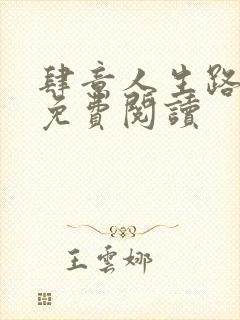 肆意人生路
免費閱讀
王雲娜